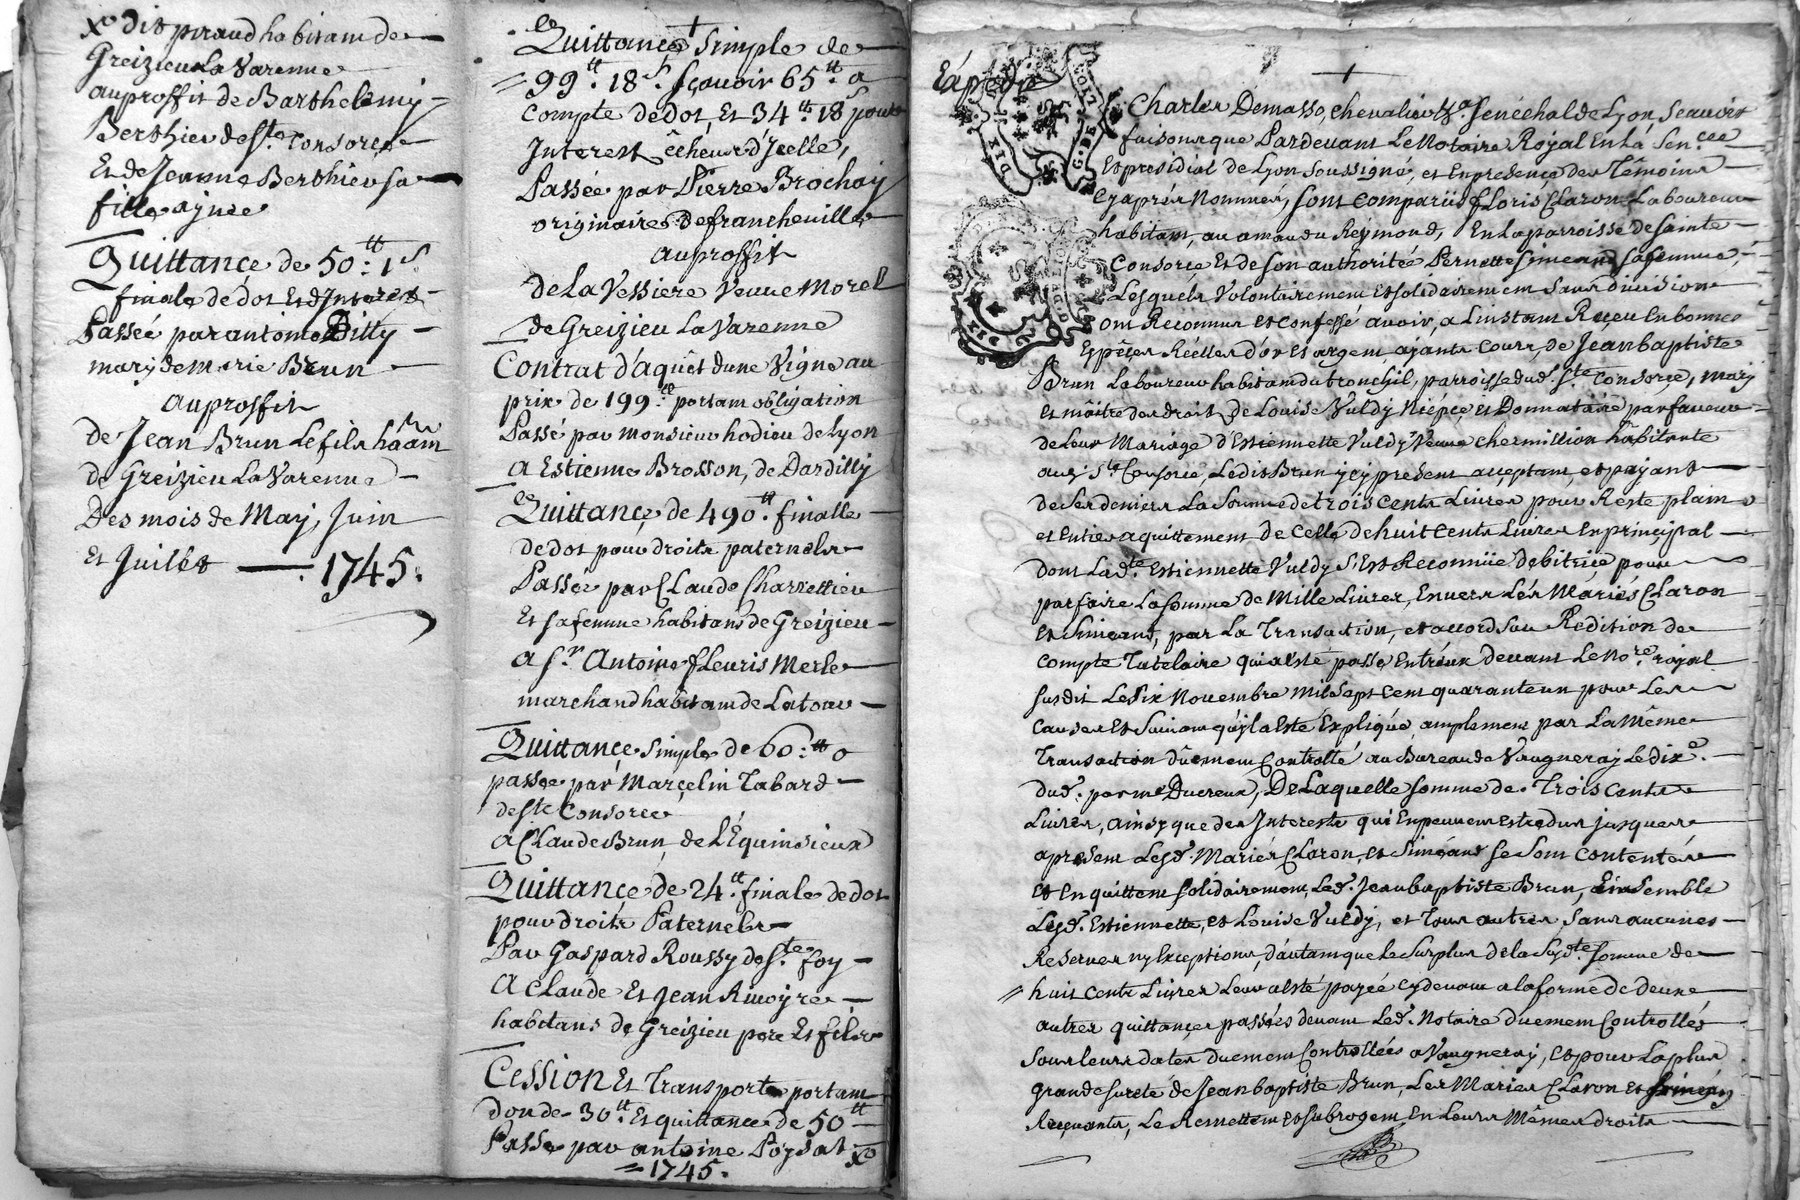 Xo dit piraud habitam de
Greizieu La Varenne
au proffit de Barthelemy
Berthieu de Ste. Consorce
Et de Jeanne Berthieu sa
fille aynée
Quittance de 50tt. 1s
finale de dot Et d'Interest
Passée par antoine Dilly
mary de marie Brun
au proffit
de Jean Brun Le fils
de Greizieu La Varenne
Des mois de May, Juin
Et Juillet — 1745.
Quittance Simple de
99tt. 18s. sçavoir 65tt. a
compte de dot, Et 34tt. 18s pour
Interest êcheus d'Jcelle,
Passée par Pierre Brochay
originaire de francheuille
au proffit
de La Vessiere Veuue Morel
de Greizieu La Varenne
Contrat d'aquêt dune Vigne au
prix de 199tt. portam obligation
Passé par monsieur hodieu de Lyon
a Estienne Brosson, de Dardilly
Quittance de 490tt. finalle
de dot pour droits paternels
Passée par Claude Charrettieu
Et sa femme habitans de Greizieu
a Sr. Antoine fleuris Merle
marchand habitam de Latour
Quittance simple de 60.tt
passée par Marçelin Tabard
de Ste Consorce
a Claude Brun, de L'Équinsieux
Quittance de 24tt. finale de dot
pour droits Paternels
Par Gaspard Roussy de Ste. foy
A Claude Et Jean Rivoyre
habitans de Greizieu pere Et fils
Cession Et Transport portam
don de 30tt. Et quittance de 50tt
Passée par antoine Poysat Xo
= 1745.
DIX
G. DE
Charles Demasso, chevalier, Senéchal de Lyon, Scauoir
faisons que Pardeuant Le Notaire Royal En La Sen.cée
Et presidial de Lyon soussigné, et En presence des Témoins
Cy aprés Nommés, sont comparus floris Claron Laboureur
habitam, au amau du Reymond, En La parroisse de Sainte
Consorce Et de son authoritée Pernette Simeand sa femme,
Lesquels Volontairement Et solidairement sans diuision
ont Reconnus et confessé auoir, a Linstant Reçeu En bonnes
Espêces Réelles d'or Et argent ayants cours, de Jean baptiste
Brun Laboureur habitam du tronchil, parroisse dud. Ste. Consorce, mary
et mâitre des droits de Louise Vuldy Niépce et Donnatáire par faueur
de Leur Mariage d'Estiennette Vuldy Veuue Chermillion habitante
aud. Ste. Consorce, Ledit Brun jcy present acceptant, et payant
de Ses deniers La Somme de trois cents Liures pour Reste plain
et Entier aquittement de Celle de huit cents Liures En principal
dont Lad.te Estiennette Vuldy S'Est Reconnüe debitrice pour
parfaire La Somme de Mille Liures, Enuers Lés Mariés Claron
Et Simeand, par La Transaction, et accord Sur Redition de
Compte Tutelaire qui a Esté passé Entréux deuant Le No.re royal
Susdit Le Six Nouembre mil Sept Cent quarante un pour Les
Causes Et Suiuant quyl a Esté Expliqué amplement par La Même
Transaction dûement Controllé au Bureau de Vaugneray Le dix
dud. par me Ducreux, De Laquelle Somme de Trois Cents
Liures, ainsy que des Interests qui En peuuent Estre dus jusques
apresent Lesd. Mariés Claron, et Simeand Se Sont Contentés
Et En quittent solidairement, Led. Jean baptiste Brun, Ensemble
Lesd. Estiennette, et Louise Vuldy, et Tous autres sans aucunes
Reserues ny Exceptions, dáutam que Le Surplus de La Sud.te Somme de
huit Cents Liures Leur a Esté payée cy deuant a la forme de deux
autres quittances passées deuant Led. Notaire duement Controllés
Sous leurs dates duement Controllées a Vaugneray, et pour La plus
grande Sureté de Jean baptiste Brun, Les Mariés Claron et Siméand
, Le Remettent et subrogent En Leurs Mêmes droits